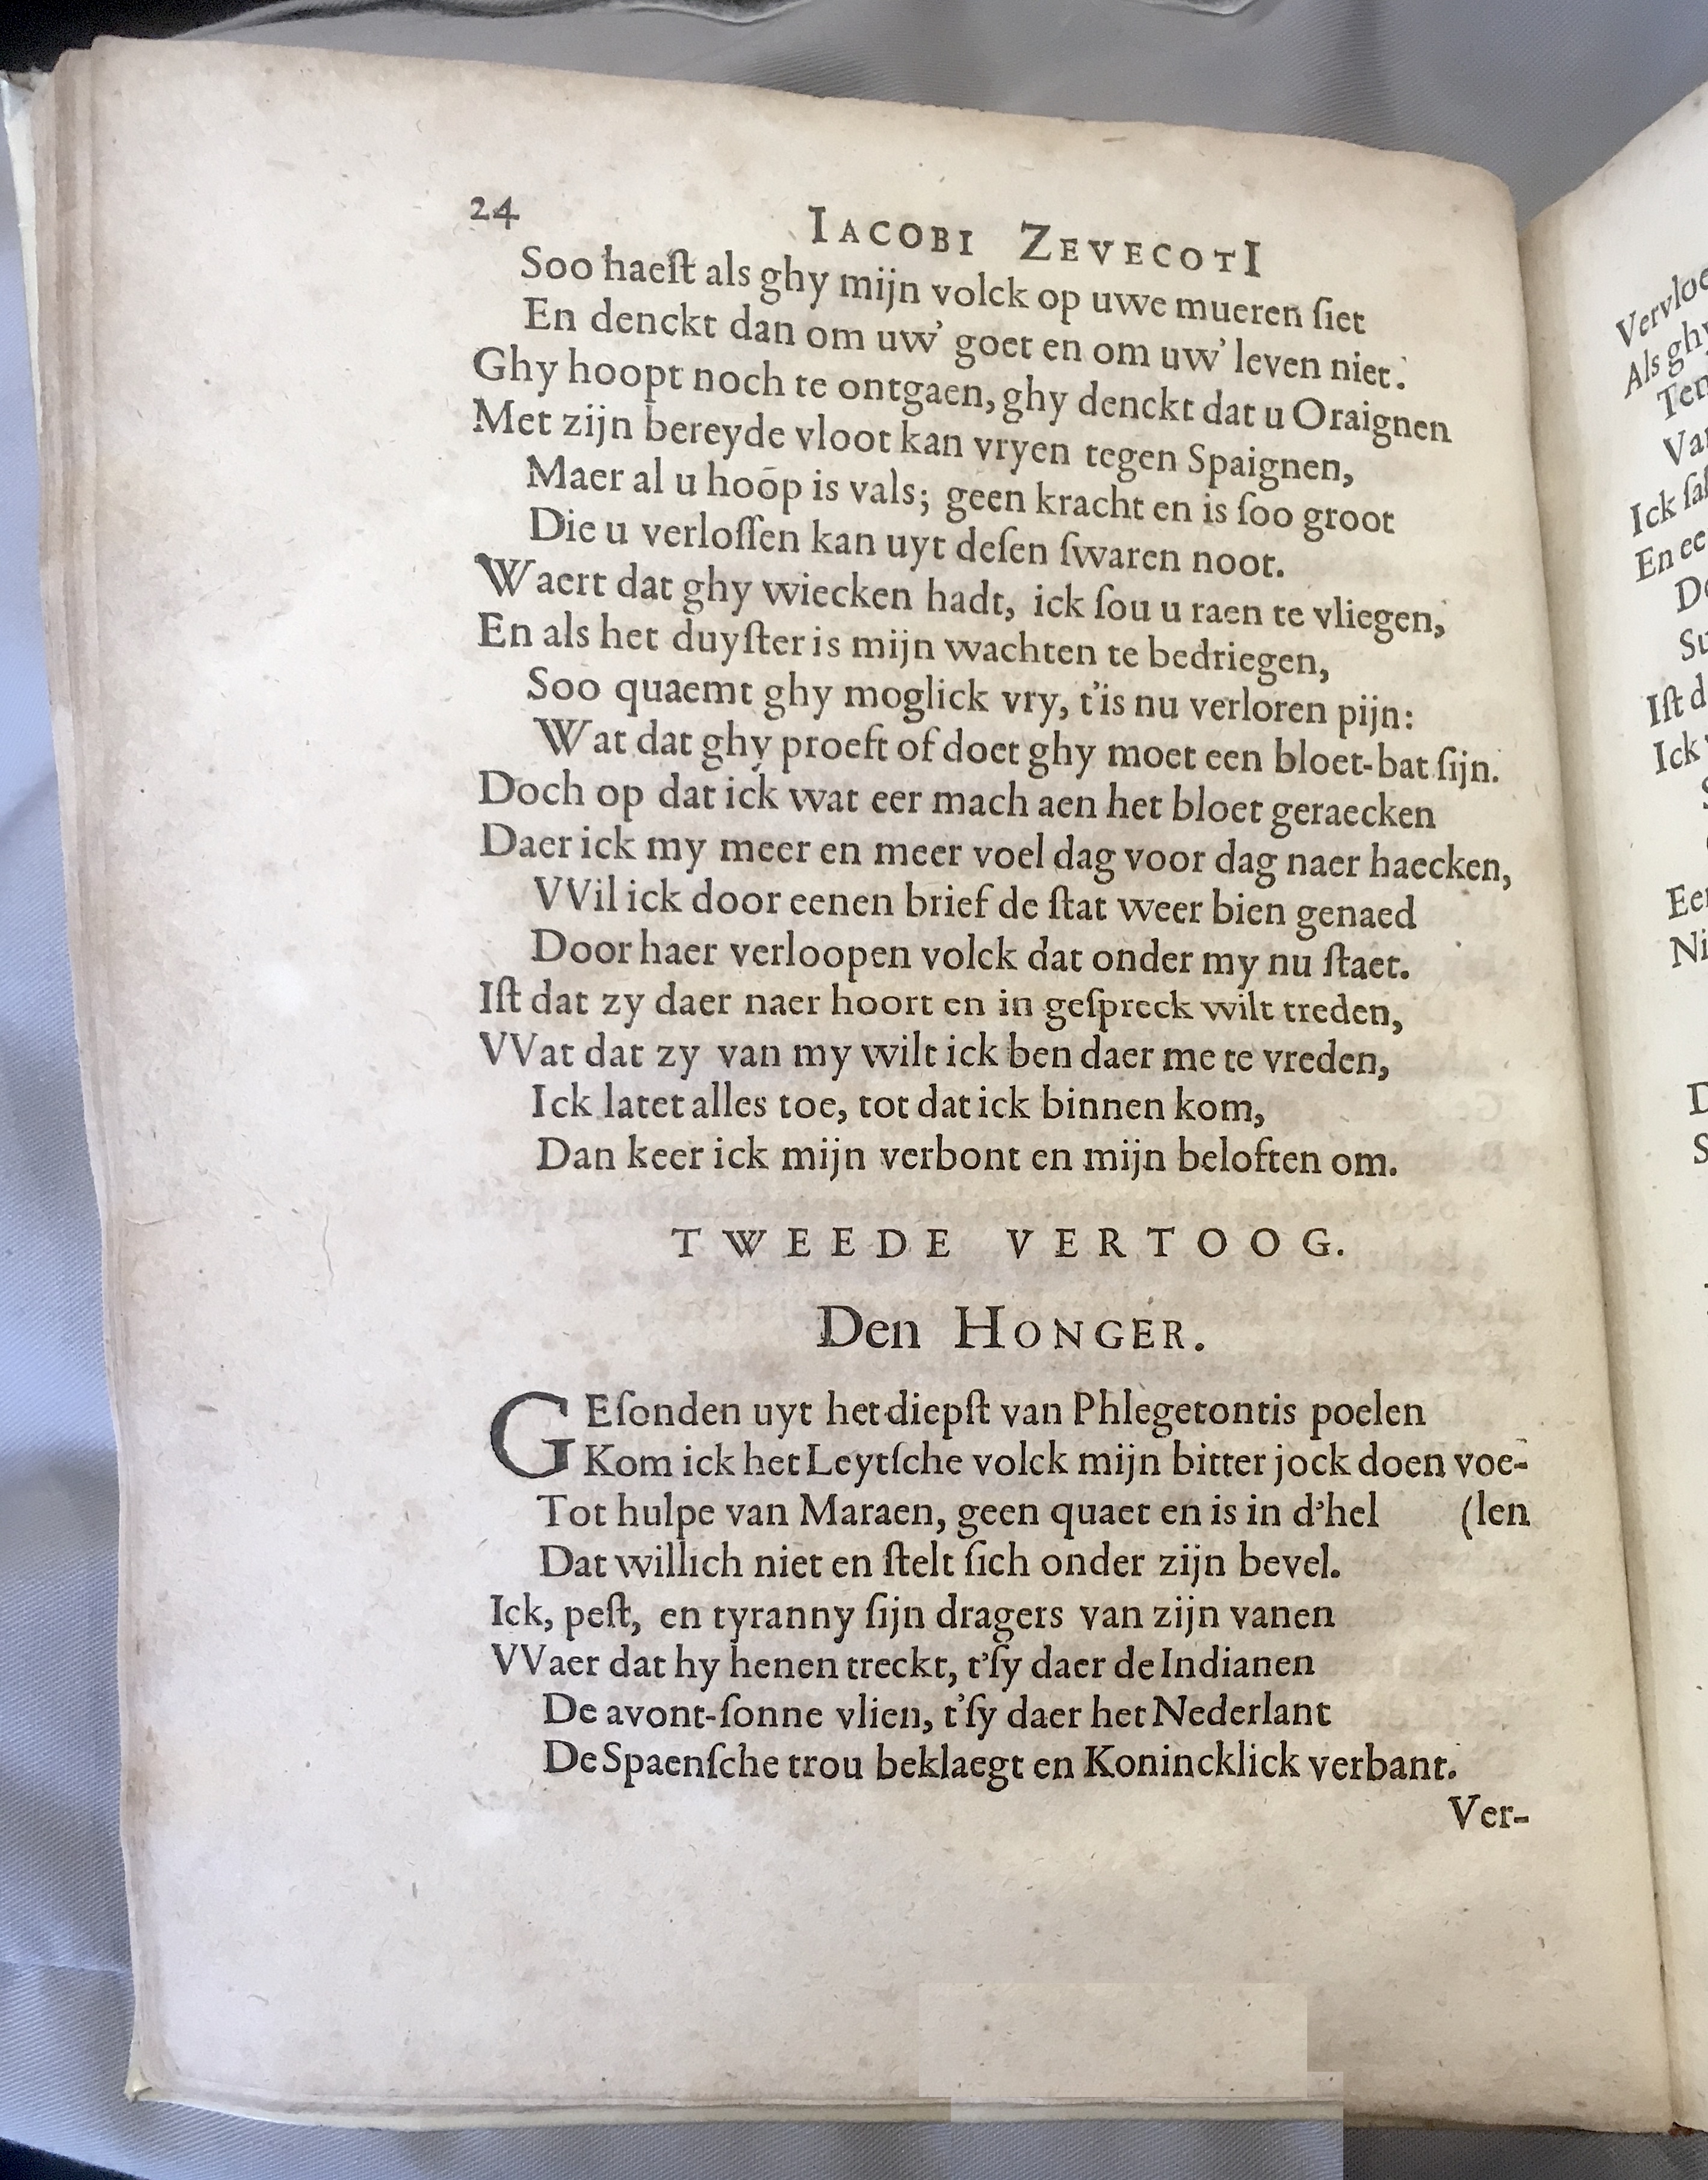 24 IACOBI ZEVECOTI
Soo haeſt als ghy mijn volck op uwe mueren ſiet
En denckt dan om uw' goet en om uw' leven niet.
Ghy hoopt noch te ontgaen, ghy denckt dat u Oraignen
Met zijn bereyde vloot kan vryen tegen Spaignen,
Maer al u hoōp is vals; geen kracht en is ſoo groot
Die u verloſſen kan uyt deſen ſwaren noot.
Waert dat ghy wiecken hadt, ick ſou u raen te vliegen,
En als het duyſter is mijn wachten te bedriegen,
Soo quaemt ghy moglick vry, t'is nu verloren pijn:
Wat dat ghy proeft of doet ghy moet een bloet-bat ſijn.
Doch op dat ick wat eer mach aen het bloet geraecken
Daer ick my meer en meer voel dag voor dag naer haecken,
VVil ick door eenen brief de ſtat weer bien genaed
Door haer verloopen volck dat onder my nu ſtaet.
Iſt dat zy daer naer hoort en in geſpreck wilt treden,
VVat dat zy van my wilt ick ben daer me te vreden,
Ick latet alles toe, tot dat ick binnen kom,
Dan keer ick mijn verbont en mijn beloften om.
TWEEDE VERTOOG.
Den HONGER.
GEſonden uyt het diepſt van Phlegetontis poelen
Kom ick het Leytſche volck mijn bitter jock doen voe-
Tot hulpe van Maraen, geen quaet en is in d'hel (len
Dat willich niet en ſtelt ſich onder zijn bevel.
Ick, peſt, en tyranny ſijn dragers van zijn vanen
VVaer dat hy henen treckt, t'ſy daer de Indianen
De avont-ſonne vlien, t'ſy daer het Nederlant
De Spaenſche trou beklaegt en Konincklick verbant.
Ver-
Als ghy
Van
Iſt d
Ick